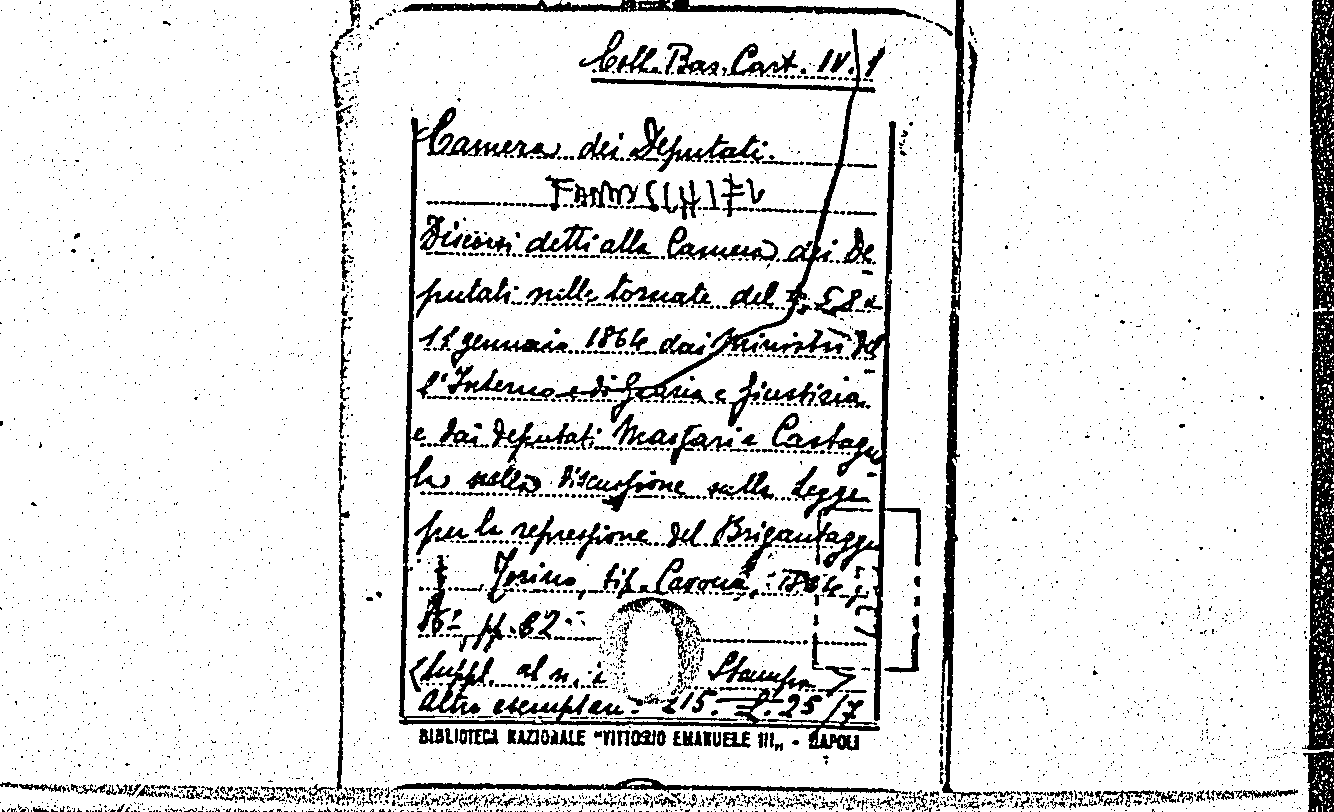 Coll. Bas. Cart. IV. 1
Camera dei Deputati.
Discorsi detti alla Camera dei De
putati nelle tornate del 8 e
11 gennaio 1864 dai Ministri del
l'Interno e di Grazia e Giustizia
e dai deputati Massari e Castagno
la nella discussione sulla Legge
per la repressione del Brigantaggio
Torino, tip. Cavour, 1864,
16º pp. 62
(Suppl. al n. Stampa)
Altro esemplare: 215. L. 25/7
BIBLIOTECA NAZIONALE "VITTORIO EMANUELE III„ - NAPOLI